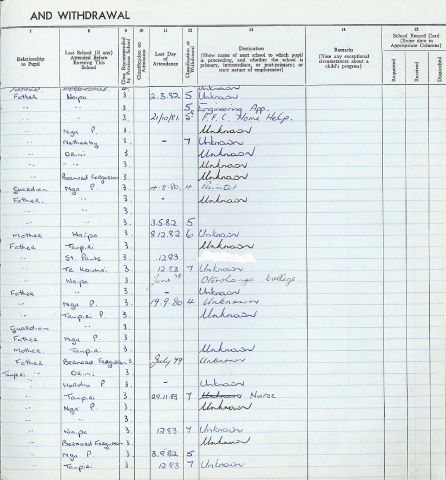 AND WITHDRAWAL
7 8 9 10 11 12 13 14 15
Relationship to Pupil
Last School (if any) Attended Before Entering This School
Class Recommended by Previous School
Classification on Admission
Last Day of Attendance
Classification at Withdrawal
Destination
(Show name of next school to which pupil is proceeding, and whether the school is primary, intermediate, or post-primary; or state nature of employment)
Remarks
(Note any exceptional circumstances about a child's progress)
School Record Card
(Enter date in Appropriate Columns)
Requested
Received
Despatched
Unknown
Father Waipa 3. 2.3.82 5 Unknown
" 3. 5 Engineering App.
" 3. 21/10/81. 5 F.F.C. Home Help.
" Nga P. 3. Unknown
" Netherby 3. - 7 Unknown
" Orini 3. Unknown
" " 3. Unknown
" Bernard Ferguson 3. Unknown
Guardian Nga P. 3. 4.8.80. 4 Painter
Father " 3. - Unknown
" " 3.
" " 3. 3.5.82 5
Mother Waipa 3. 8.12.82 6 Unknown
Father Taupiri 3. Unknown
" St Pauls 3. 12.83
" Te Kauwhai 3. 12.83 7 Unknown
" Waipa 3. June '79 Otorohanga College
Father " 3. - Unknown
" Nga P. 3. 19.9.80 4 Unknown
" Taupiri P 3. Unknown
Guardian " 3.
Father Nga P. 3.
Mother Taupiri 3. Unknown
Father Bernard Ferguson 3. July '79 Unknown
Orini 3.
" P. 3. - Unknown
" Taupiri 3. 29.11.83 7 Nurse
" Nga P. 3. Unknown
" " 3.
" Waipa 3. 12.83 7 Unknown
" Bernard Ferguson 3. Unknown
" Nga P 3. 3.8.82 5
" Taupiri 3. 12.83 7 Unknown